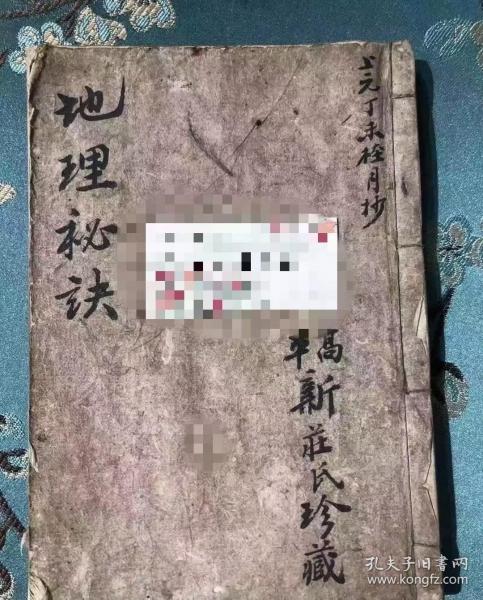 上元丁未桂月抄
高平
新莊氏珍藏
地理秘訣
孔夫子旧書网
www.kongfz.com